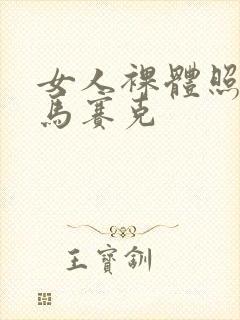 女人裸體照
馬賽克
王寶釧